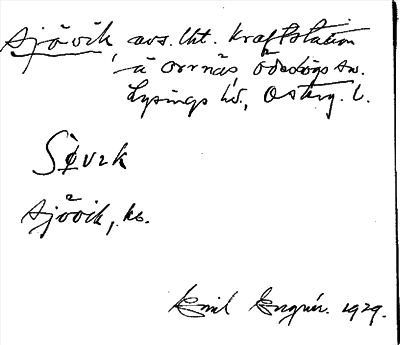 Sjövik, avs. lht. kraftstation
å Orrnäs, Ödeshögs sn.
Lysings hd., Österg. l.
Sjövik, ks.
Emil Engnér. 1929.